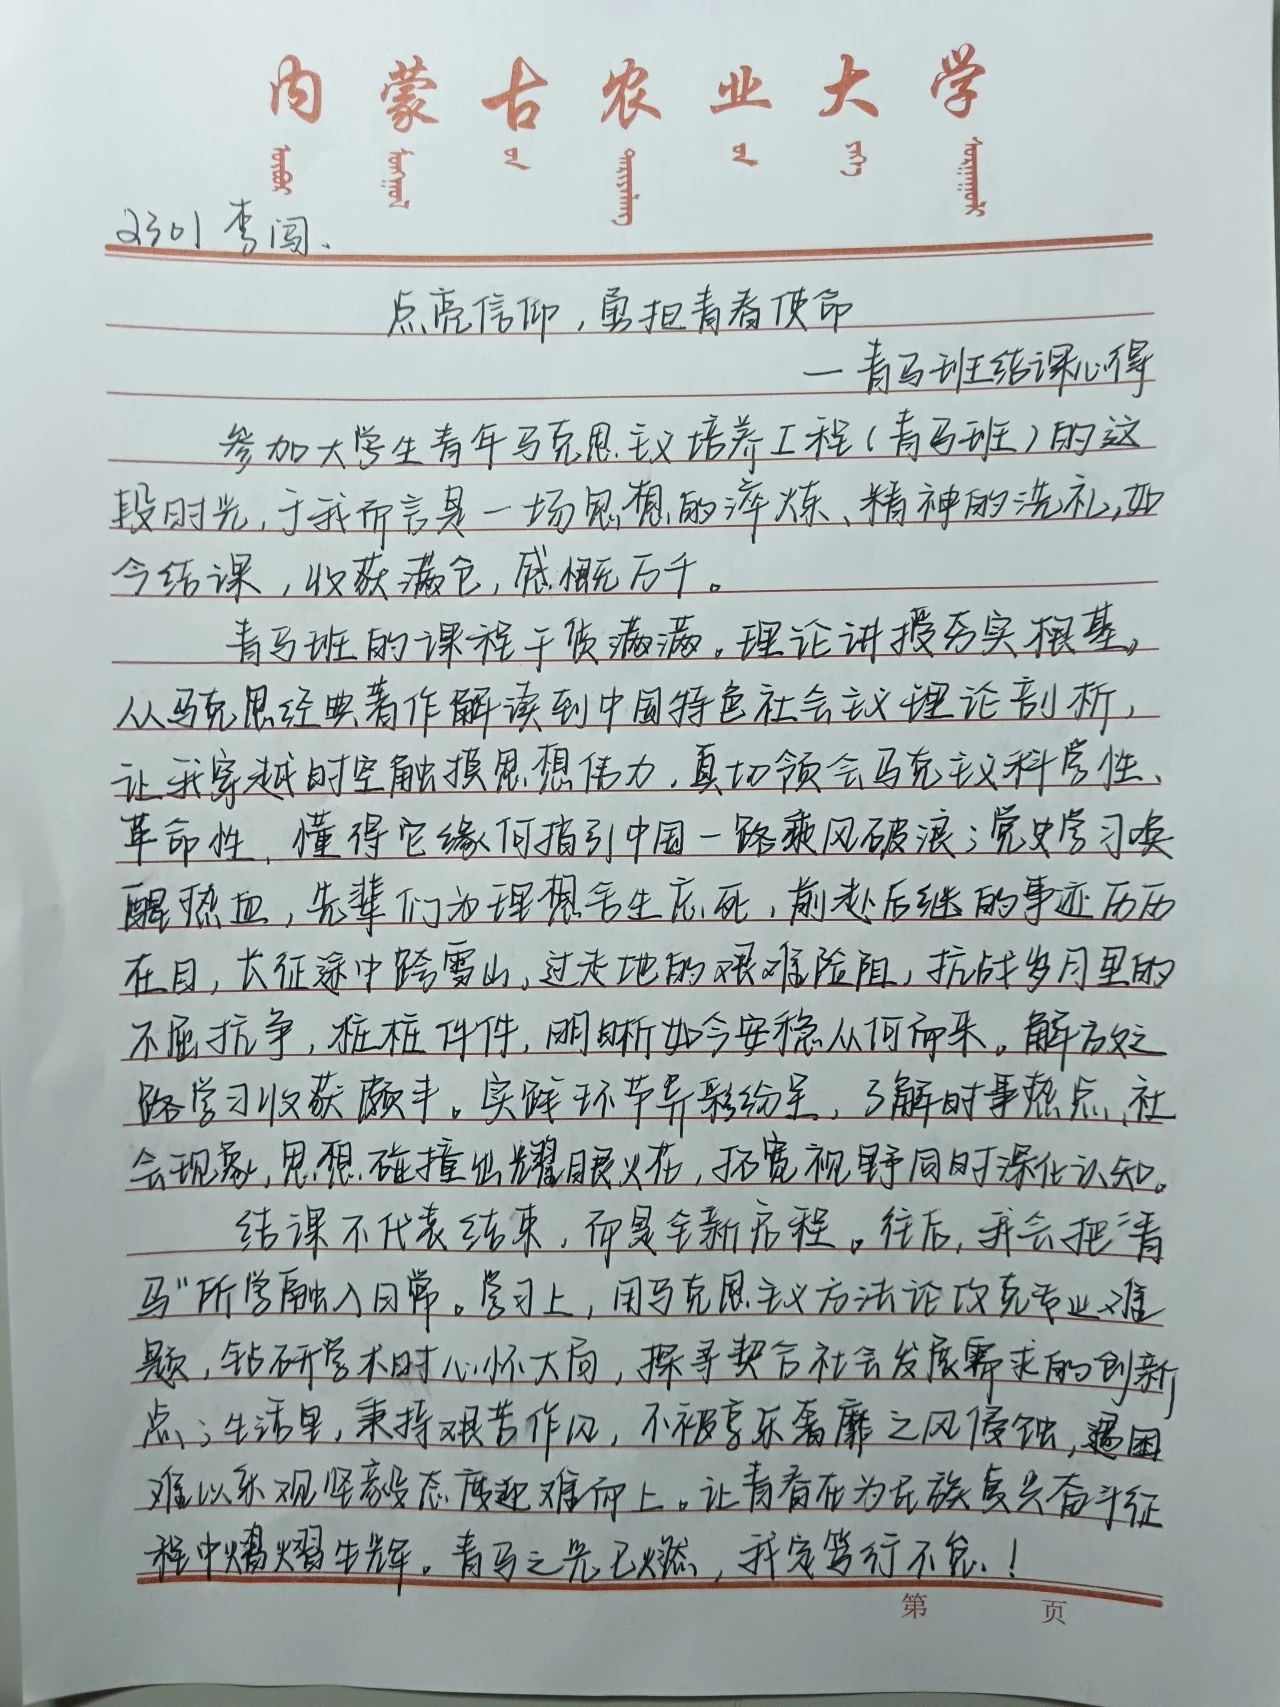 内蒙古农业大学
2301 李闯、
点亮信仰，勇担青春使命
—青马班结课心得
参加大学生青年马克思主义培养工程（青马班）的这
段时光，于我而言是一场思想的淬炼、精神的洗礼，如
今结课，收获满仓，感慨万千。
青马班的课程干货满满。理论讲授夯实根基，
从马克思经典著作解读到中国特色社会主义理论剖析，
让我穿越时空触摸思想伟力，真切领会马克主义科学性、
革命性，懂得它缘何指引中国一路乘风破浪；党史学习唤
醒热血，先辈们为理想舍生忘死，前赴后继的事迹历历
在目，长征途中跨雪山，过走地的艰难险阻，抗战岁月里的
不屈抗争，桩桩件件，明晰如今安稳从何而来。解放之
路学习收获颇丰。实践环节异彩纷呈，了解时事热点、社
会现象，思想碰撞出耀眼火花，拓宽视野同时深化认知。
结课不代表结束，而是全新启程。往后，我会把“青
马”所学融入日常。学习上，用马克思主义方法论攻克专业难
题，钻研学术时心怀大局，探寻契合社会发展需求的创新
点；生活里，秉持艰苦作风，不被享乐奢靡之风侵蚀，遇困
难以乐观坚毅态度迎难而上。让青春在为民族复兴奋斗征
程中熠熠生辉。青马之光已燃，我定笃行不怠！
第 页